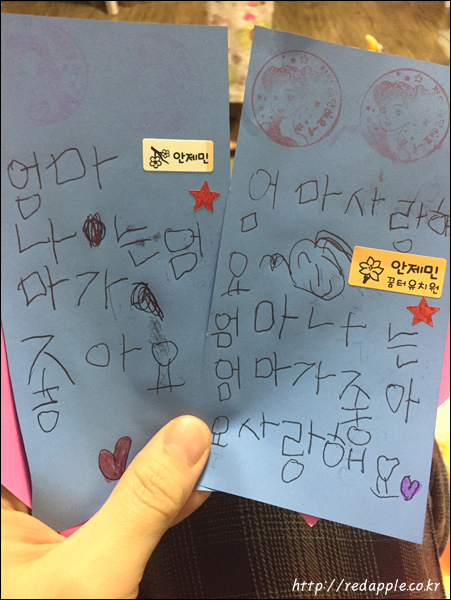 안제민
엄마
나는엄
마가
좋아요
엄마사랑해
요
안제민
꿈터유치원
엄마나는
엄마가좋아
요사랑해요
http://redapple.co.kr